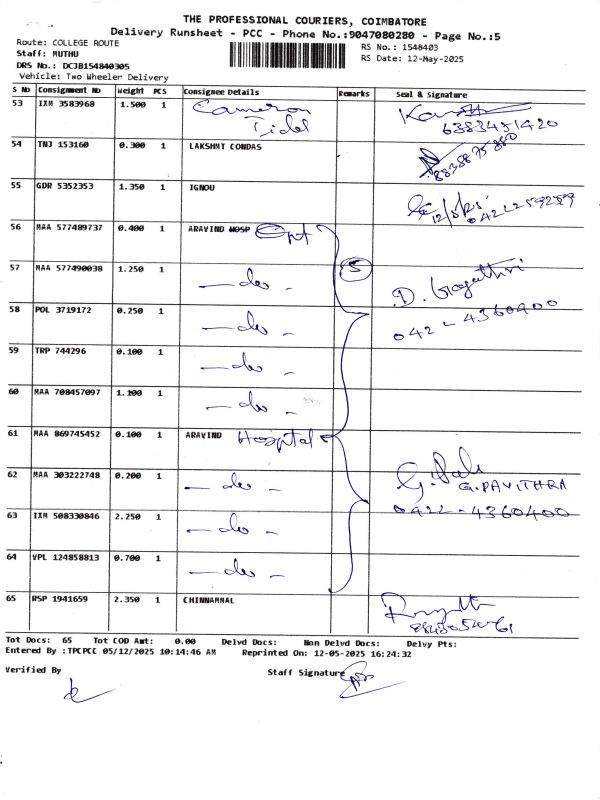 THE PROFESSIONAL COURIERS, COIMBATORE
Delivery Runsheet - PCC - Phone No.:9047080280 - Page No.:5
Route: COLLEGE ROUTE
RS No.: 1548403
Staff: MUTHU
RS Date: 12-May-2025
DRS No.: DCJB154840305
Vehicle: Two Wheeler Delivery
S No Consignment No Weight PCS Consignee Details Remarks Seal & Signature
53 IXM 3583968 1.500 1 Cameron
Tidel
54 TNJ 153160 0.300 1 LAKSHMT CONDAS
55 GDR 5352353 1.350 1 IGNOU
12/5/25
56 MAA 577489737 0.400 1 ARAVIND HOSP
57 MAA 577490038 1.250 1 - do - 5
D. Gayathri
58 POL 3719172 0.250 1 - do - 0422 - 4360400
59 TRP 744296 0.100 1 - do -
60 MAA 708457097 1.100 1 - do -
61 MAA 869745452 0.100 1 ARAVIND Hospital
62 MAA 303222748 0.200 1 - do - G. PAVITHRA
0422 - 4360400
63 IXM 508330846 2.250 1 - do -
64 VPL 124858813 0.700 1 - do -
65 RSP 1941659 2.350 1 CHINNAMMAL
Tot Docs: 65 Tot COD Amt: 0.00 Delvd Docs: Non Delvd Docs: Delvy Pts:
Entered By :TPCPCC 05/12/2025 10:14:46 AM Reprinted On: 12-05-2025 16:24:32
Verified By Staff Signature